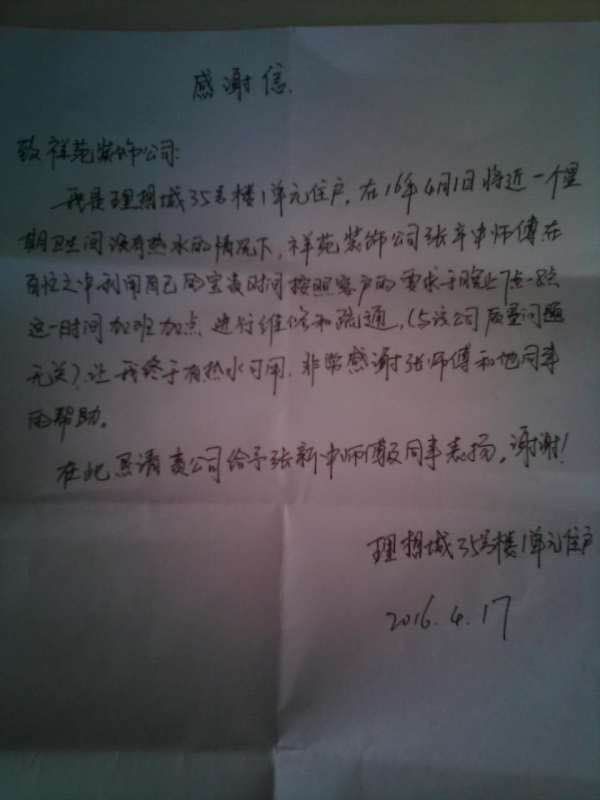 感谢信
致祥苑装饰公司:
我是理想城35号楼1单元住户,在16年4月1日将近一个星
期卫间没有热水的情况下,祥苑装饰公司张辛中师傅在
百忙之中利用自己的宝贵时间按照客户的要求于晚上7点-8点
这一时间加班加点进行维修和疏通,(与该公司质量问题
无关)让我终于有热水可用,非常感谢张师傅和他同事
的帮助。
在此恳请贵公司给予张新中师傅及同事表扬,谢谢!
理想城35号楼1单元住户
2016.4.17